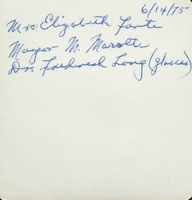 6/14/75
Mrs Elizabeth Forte
Mayor M. Marotte
Dr. Frederick Long (glasses)